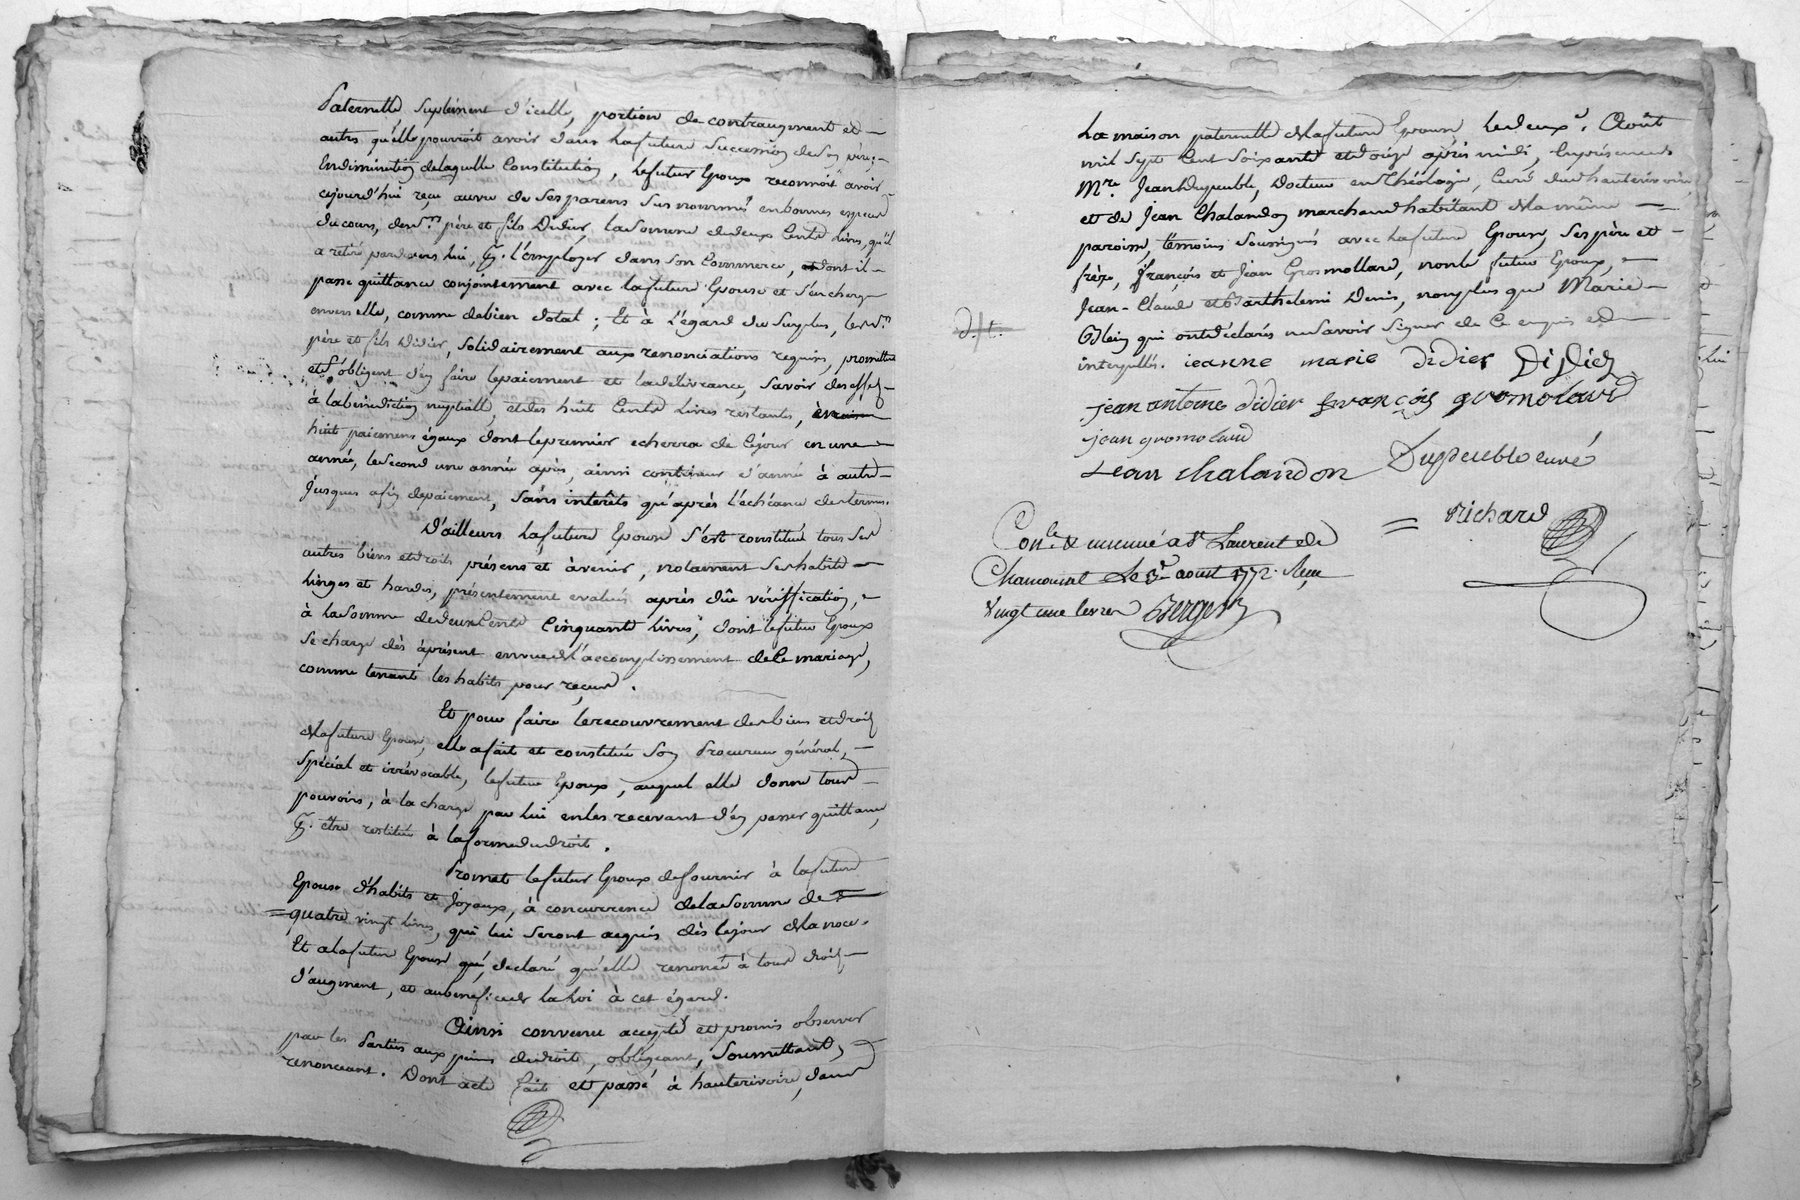 Paternelle, suplément d'icelle, portion de contraugment et
autres qu'elle pourroit avoir dans la future succession de son père;
En diminution de laquelle Constitution, le futur Epoux reconnoit avoir
cejourd'hui reçu outre de ses parens susnommés en bonnes especes
du cours, desd. rs père et fils Didier, la somme de deux Cents Livres, qu'il
a retiré pardevers lui, pr. l'employer dans son Commerce, et dont il
passe quittance conjointement avec la future Epouse et s'en charge
envers elle, comme de bien dotal; Et à l'égard du surplus, lesd. rs
père et fils Didier, solidairement aux renonciations requises, promettent
et s'obligent d'en faire le paiement et la délivrance, savoir des effets
à la bénédiction nuptialle, et des huit Cents Livres restants, en
huit paiemens égaux dont le premier echerra de ce jour en une
année, le second une année après, ainsi continuer d'année à autre
jusques a fin de paiement, sans intérêts qu'après l'echéance des termes.
D'ailleurs la future Epouse s'est constitué tous ses
autres biens et droits présens et àvenir, notament ses habits
Linges et hardes, présentement evalués après dûe vériffication,
à la somme de deux Cents Cinquante Livres, dont le futur Epoux
se charge dès àprésent en vue de l'accomplissement de Ce mariage,
comme tenant les habits pour reçus.
Et pour faire le recouvrement des biens et droits
de la future Epouse, elle a fait et constitué son Procureur général,
Spécial et irrévocable, le futur Epoux, auquel elle donne tous
pouvoirs, à la charge par Lui en les recevant d'en passer quittance
pr. être restitué à la forme du droit.
Promet le futur Epoux de fournir à la future
Epouse d'habits et Joyaux, à concurrence de la somme de
quatre vingt Livres, qui lui seront acquis dès le jour de la noce.
Et a la future Epouse qui, déclaré qu'elle renonce à tous droits
d'augment, et au bénéfice de la Loi à cet égard.
Ainsi convenu accepté et promis observer
par les Parties aux peines de droit, obligeant, soumettant,
renonceant. Dont acte fait et passé à hauterivoire, dans
La maison paternelle de la future Epouse, le deuxe. Août
mil Sept Cent Soixante et douze après midi, En présence de
Mre. Jean Dupeuble, Docteur en Théologie, Curé dud hauterivoire
et de Jean Chalandon marchand habitant de la même
paroisse, témoins soussignés avec la future Epouse, ses père et
frère, françois et Jean Grosmollard, non le futur Epoux,
Jean-Claude et Barthelemi Denis, non plus que Marie
Blein qui ont déclarés ne savoir signer de Ce enquis et
interpellés. jeanne marie didier Didier
jean antoine didier françois gromolard
jean gromolard
Jean chalandon Dupeuble curé
Richard
Con.lé & insinué a St Laurent de
Chamousset Le 3e aoust 1772. Reçu
Vingt une livres Berger